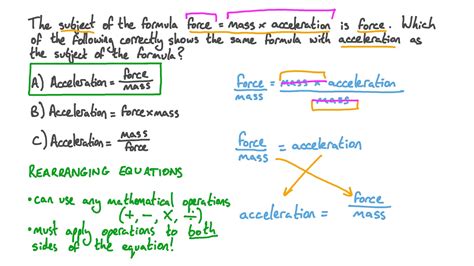 The subject of the formula force = mass x acceleration is force. Which
of the following correctly shows the same formula with acceleration as
the subject of the formula?
A) Acceleration = force/mass
B) Acceleration = force x mass
C) Acceleration = mass/force
REARRANGING EQUATIONS
• can use any mathematical operations
(+, −, ×, ÷)
• must apply operations to both
sides of the equation!
force/mass = mass x acceleration/mass
force/mass = acceleration
acceleration = force/mass